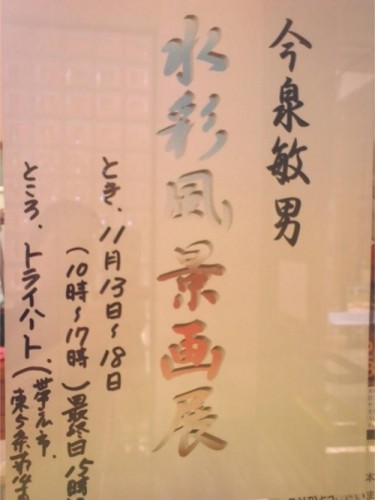 今泉敏男
水彩風景画展
とき、11月13日〜18日
(10時〜17時)最終日15時
ところ、トライハート、(帯広市、